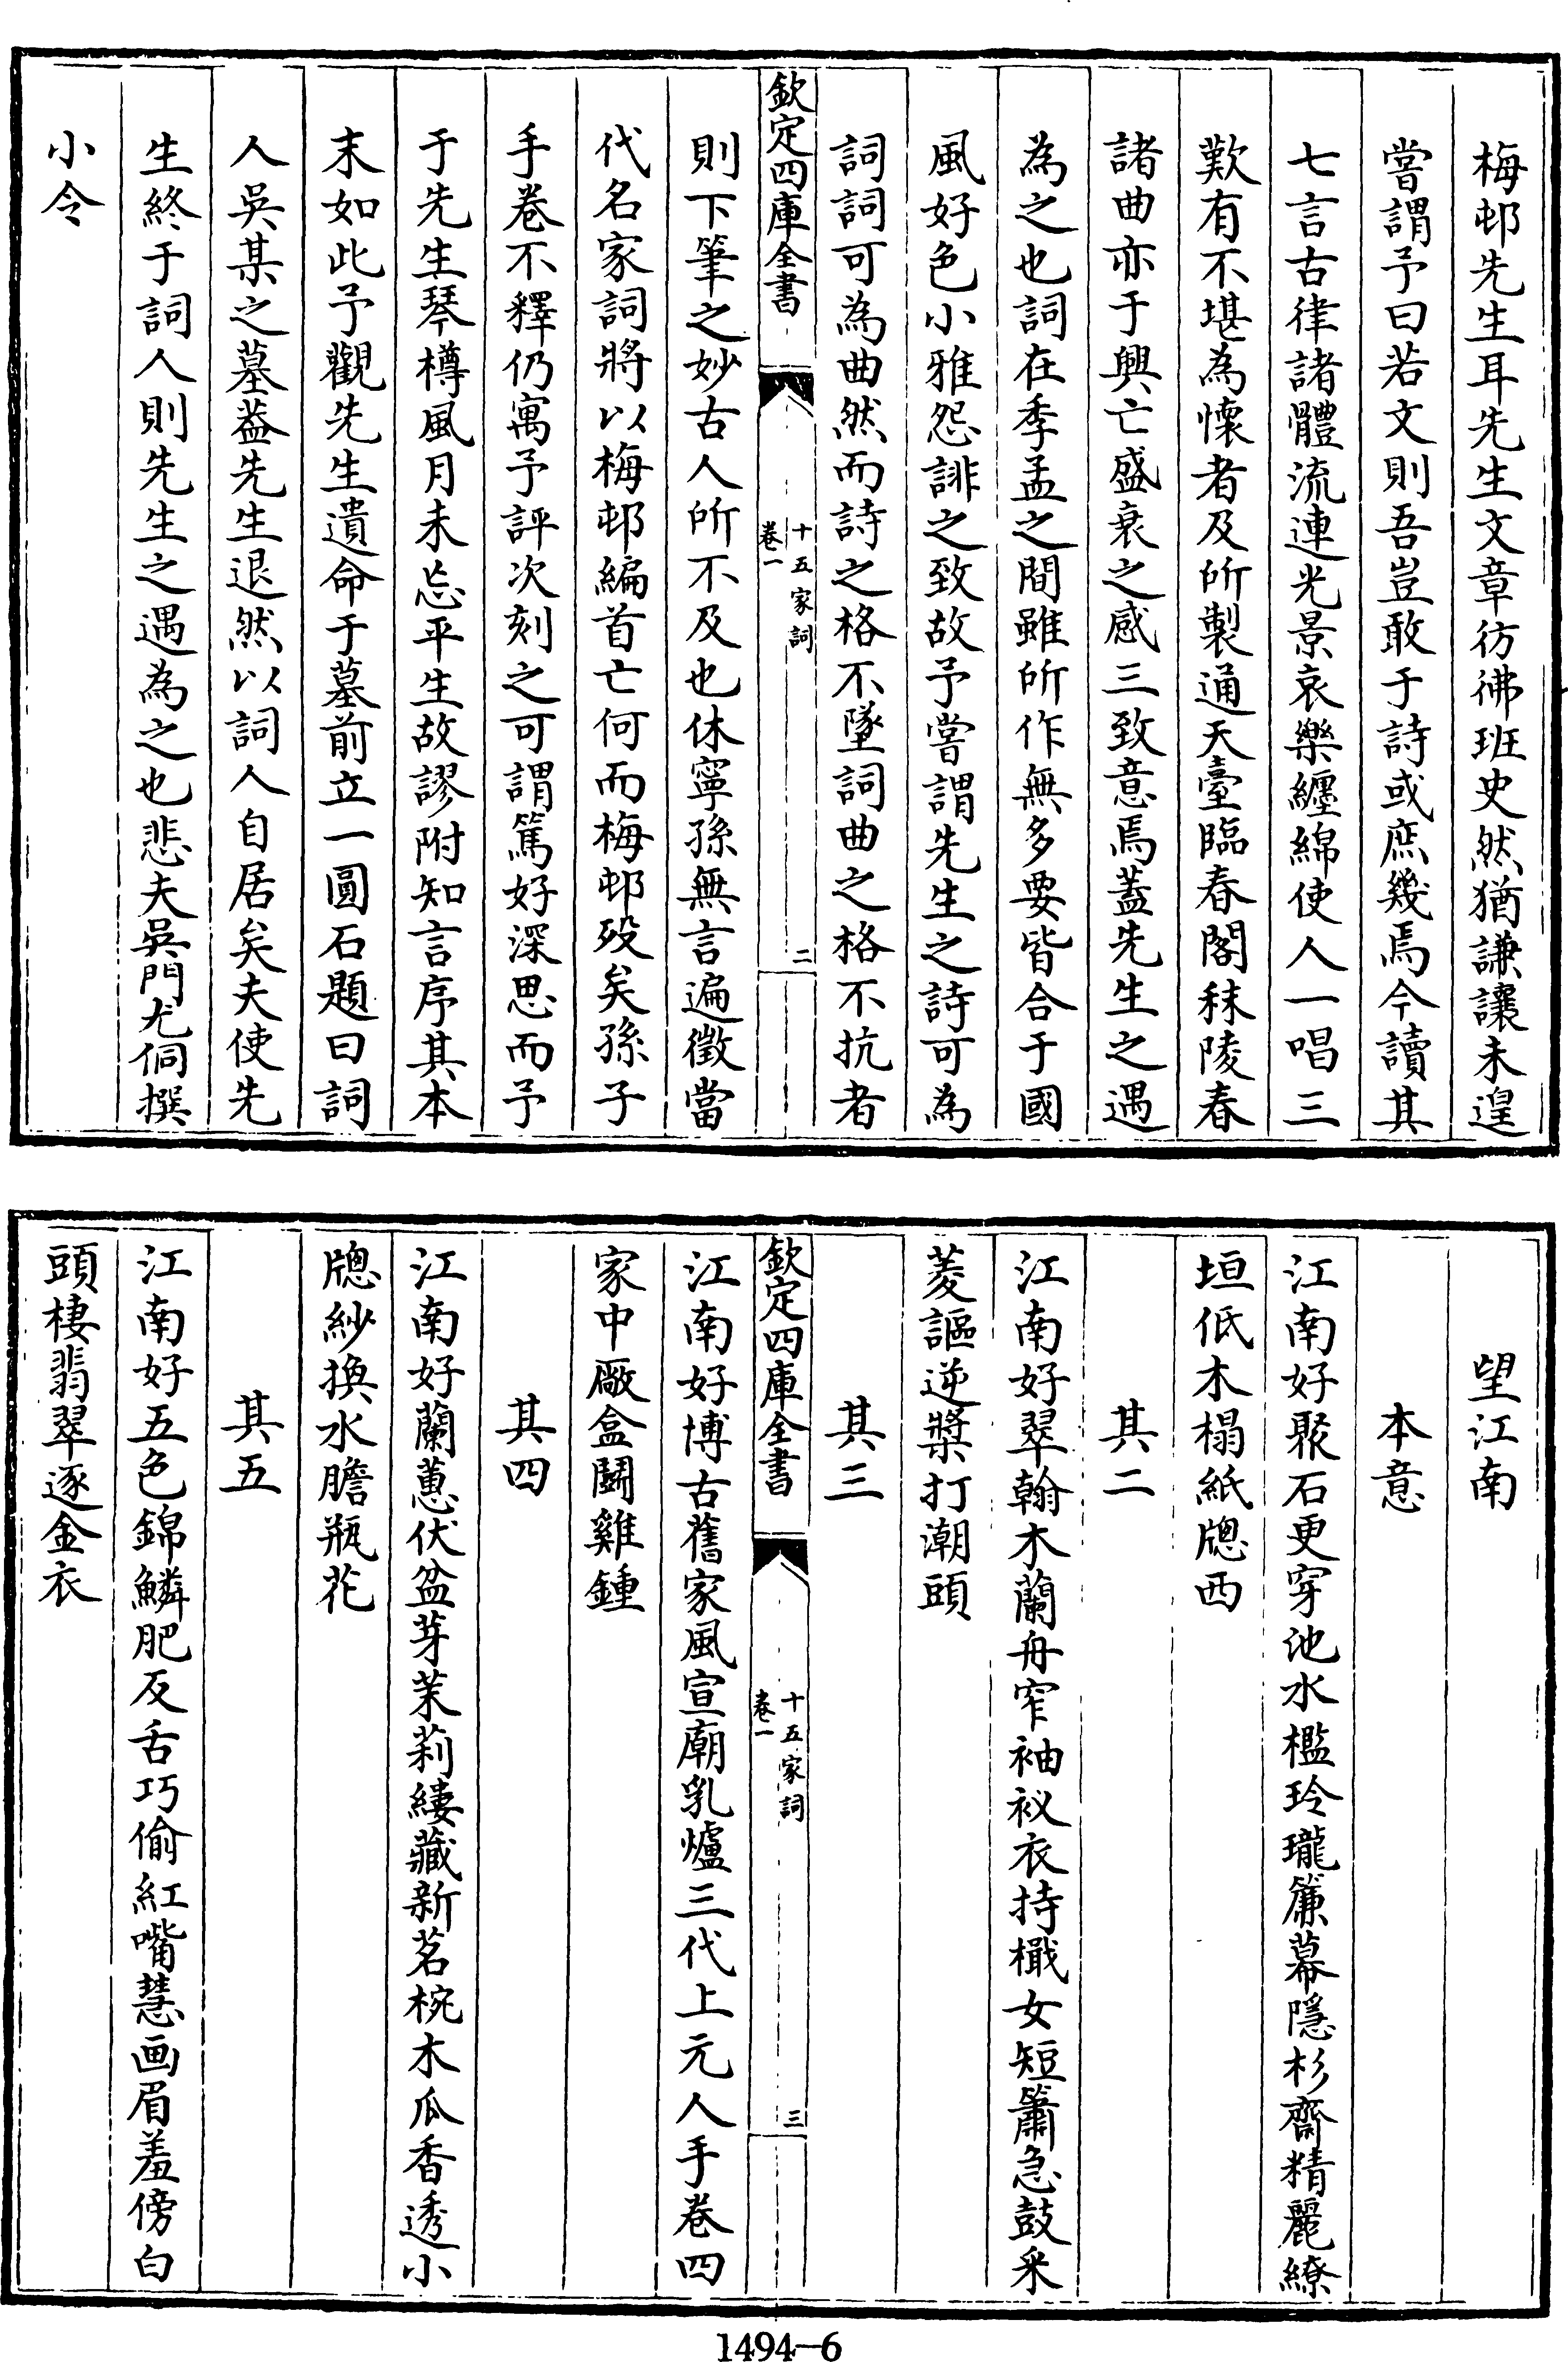 梅邨先生耳先生文章彷彿班史然猶謙讓未遑
嘗謂予曰若文則吾豈敢于詩或庶幾焉今讀其
七言古律諸體流連光景哀樂纏綿使人一唱三
歎有不堪為懷者及所製通天臺臨春閣秣陵春
諸曲亦于興亡盛衰之感三致意焉蓋先生之遇
為之也詞在季孟之間雖所作無多要皆合于國
風好色小雅怨誹之致故予嘗謂先生之詩可為
詞詞可為曲然而詩之格不墜詞曲之格不抗者
欽定四庫全書
十五家詞
卷一
二
則下筆之妙古人所不及也休寧孫無言遍徵當
代名家詞將以梅邨編首亡何而梅邨歿矣孫子
手卷不釋仍寓予評次刻之可謂篤好深思而予
于先生琴樽風月未忘平生故謬附知言序其本
末如此予觀先生遺命于墓前立一圓石題曰詞
人吳某之墓葢先生退然以詞人自居矣夫使先
生終于詞人則先生之遇為之也悲夫吳門尤侗撰
小令
望江南
本意
江南好聚石更穿池水檻玲瓏簾幕隱杉齋精麗繚
垣低木榻紙牕西
其二
江南好翠翰木蘭舟窄袖衩衣持檝女短簫急鼓采
菱謳逆槳打潮頭
其三
欽定四庫全書
十五家詞
卷一
三
江南好博古舊家風宣廟乳爐三代上元人手卷四
家中厰盒鬬雞鍾
其四
江南好蘭蕙伏盆芽茉莉縷藏新茗椀木瓜香透小
牕紗換水膽瓶花
其五
江南好五色錦鱗肥反舌巧偷紅嘴慧画眉羞傍白
頭棲翡翠逐金衣
1494-6